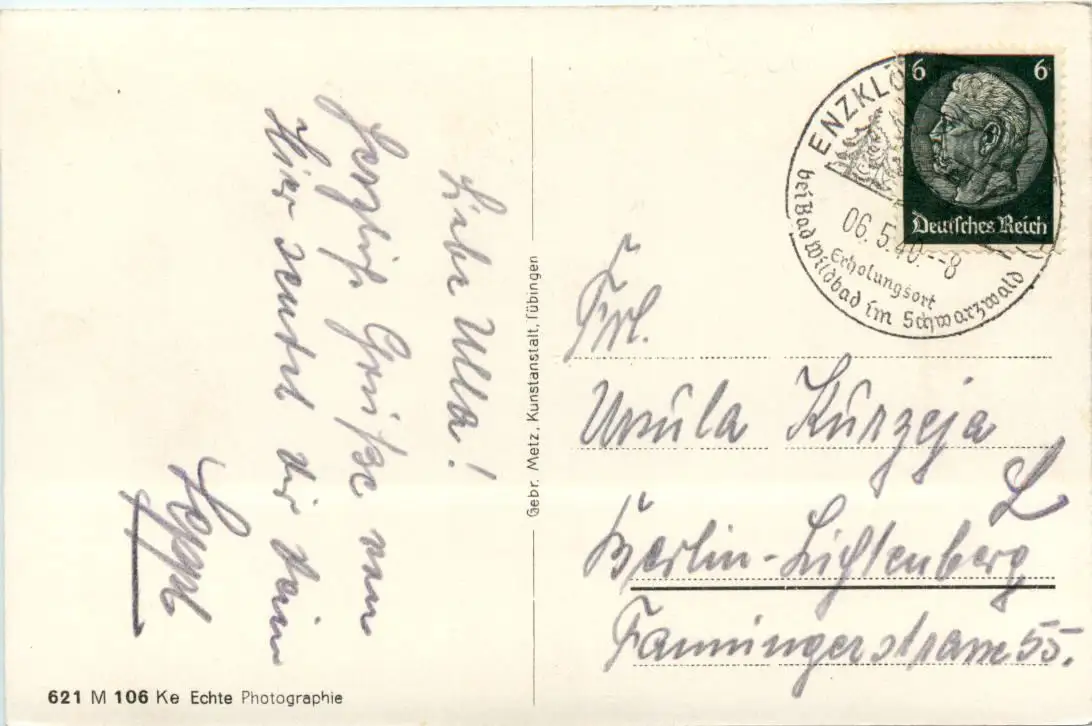 Liebe Ulla!
Herzliche Grüße von
Hier sendet dir dein
Seppl
Gebr. Metz, Kunstanstalt, Tübingen
621 M 106 Ke Echte Photographie
6 6
Deutsches Reich
ENZKLÖ
06.5.40.--8
Erholungsort
bei Bad Wildbad im Schwarzwald
Frl.
Ursula Kurzeja
Berlin-Lichtenberg
Fanningerstrasse 55.